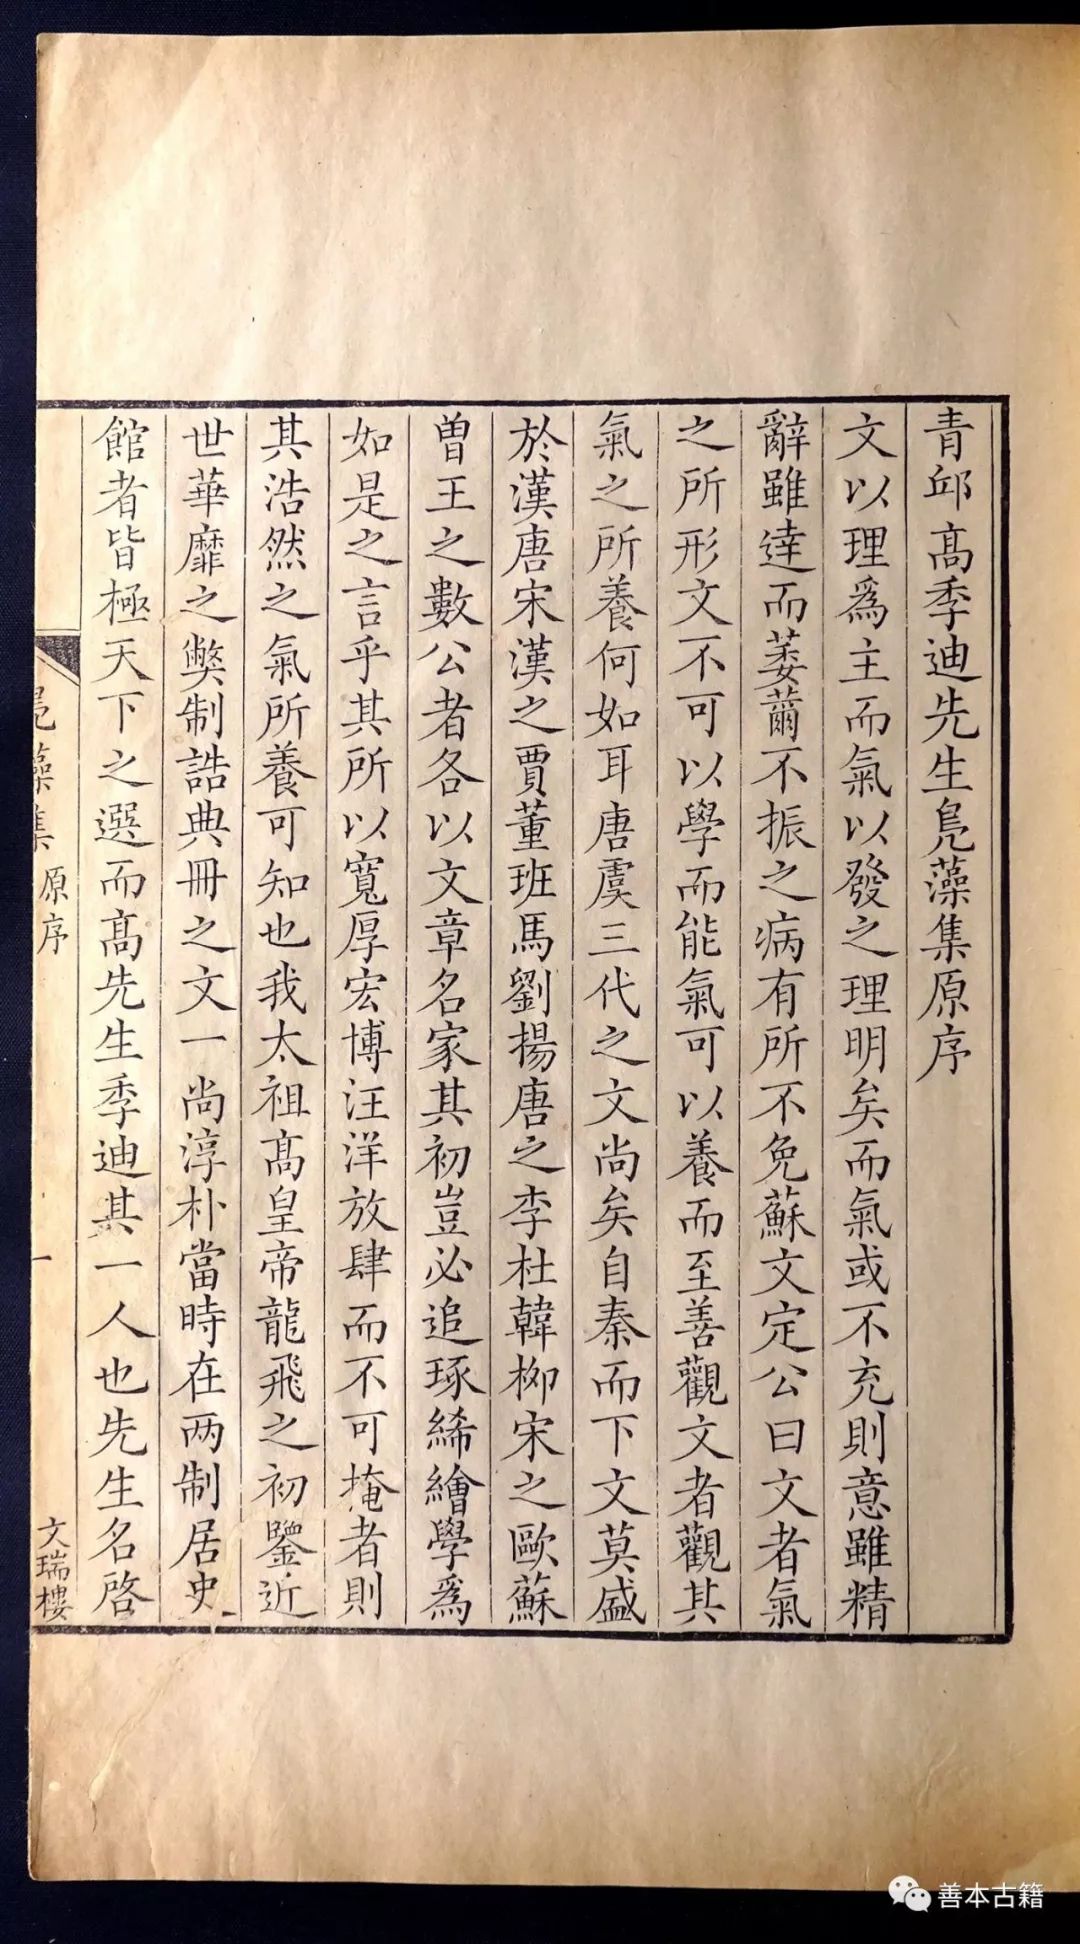 青邱髙季迪先生鳧藻集原序
文以理爲主而氣以發之理明矣而氣或不充則意雖精
辭雖達而萎薾不振之病有所不免蘇文定公曰文者氣
之所形文不可以學而能氣可以養而至善觀文者觀其
氣之所養何如耳唐虞三代之文尚矣自秦而下文莫盛
於漢唐宋漢之賈董班馬劉揚唐之李杜韓栁宋之歐蘇
曽王之數公者各以文章名家其初豈必追琢絺繪學爲
如是之言乎其所以寬厚宏博汪洋放肆而不可掩者則
其浩然之氣所養可知也我太祖髙皇帝龍飛之初鑒近
世華靡之弊制誥典冊之文一尚淳朴當時在两制居史
館者皆極天下之選而髙先生季迪其一人也先生名啓
鳧藻集 原序
一
文瑞樓
善本古籍